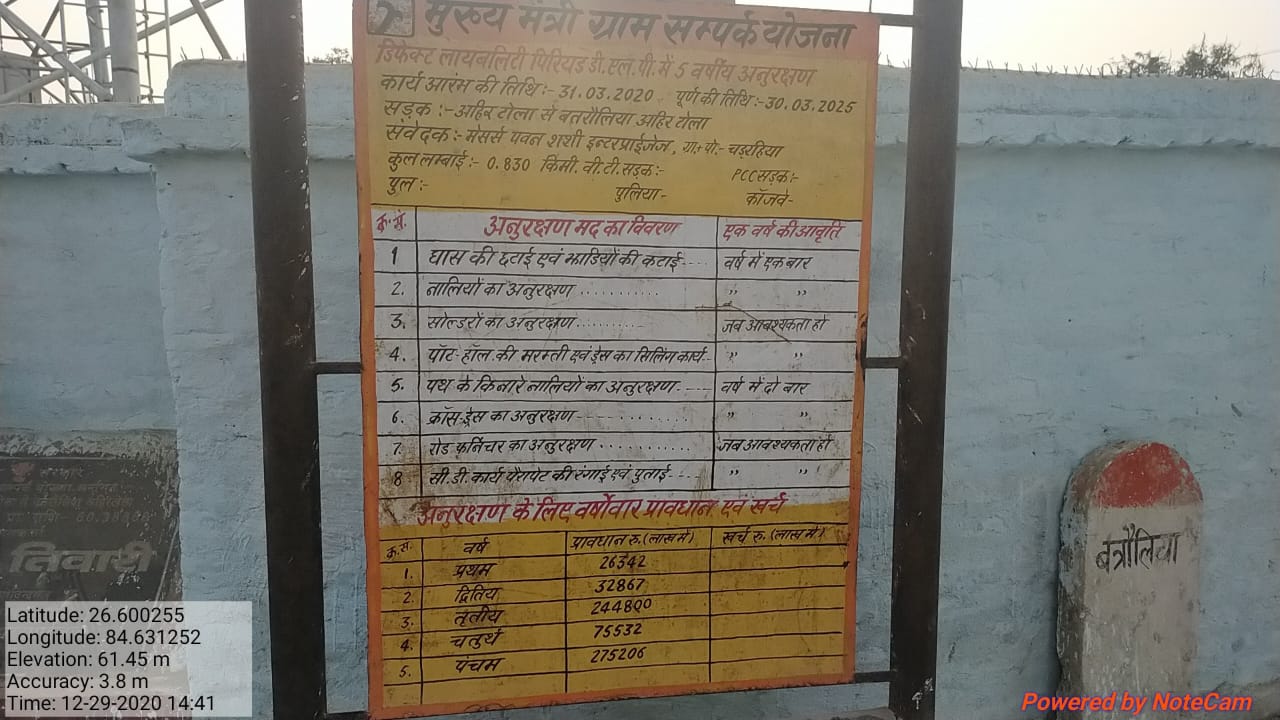 मुख्य मंत्री ग्राम सम्पर्क योजना
डिफेक्ट लायबलिटि पिरियड डी.एल.पी. में 5 वर्षीय अनुरक्षण
कार्य आरंभ की तिथि:- 31.03.2020 पूर्ण की तिथि:-30.03.2025
सड़क:-अहिर टोला से बतरौलिया अहिर टोला
संवेदक:- मेसर्स पवन शशी इन्टरप्राईजेज, ग्रा.+पो.- चड़रहिया
कुल लम्बाई:- 0.830 किमी. वी.टी.सड़क:- PCCसड़क:-
पुल:- पुलिया- कॉजवे-
क्र.सं. अनुरक्षण मद का विवरण एक वर्ष की आवृति
1 घास की छटाई एवं झाडियों की कटाई---- वर्ष में एक बार
2. नालियों का अनुरक्षण ........... ,, ,,
3. सोल्डरों का अनुरक्षण.......... जब आवश्यकता हो
4. पॉट-हॉल की मरम्ती एवं ड्रेस का सिलिंग कार्य.. ,, ,,
5. पथ के किनारे नालियों का अनुरक्षण----- वर्ष में दो बार
6. क्रॉस-ड्रेस का अनुरक्षण------------- ,, ,,
7. रोड फर्निचर का अनुरक्षण ............ जब आवश्यकता हो
8 सी.डी. कार्य पैरापेट की रंगाई एवं पुताई----- ,, ,,
अनुरक्षण के लिए वर्षोवार प्रावधान एवं खर्च
क्र.सं. वर्ष प्रावधान रु.(लाख मे) खर्च रु.(लाख मे)
1. प्रथम 26342
2. द्वितिय 32867
3. तृतीय 244800
4. चतुर्थ 75532
5. पंचम 275206
बत्रौलिया
सरकार
तिवारी
Latitude: 26.600255
Longitude: 84.631252
Elevation: 61.45 m
Accuracy: 3.8 m
Time: 12-29-2020 14:41
Powered by NoteCam